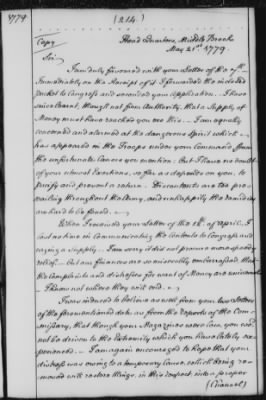 1779.
(214)
Copy
Head Quarters, Middle Brook
May 21st 1779.
Sir,
I am duly favored with your Letter of the 7th.
Immediately on the Receipt of it I forwarded the inclosed
packet to Congress and seconded your application. I have
since heard, though not from Authority, that a supply of
Money must have reached you ere this. I am equally
concerned and alarmed at the dangerous spirit which
has appeared in the Troops under your Command from
the unfortunate Causes you mention. But I have no doubt
of your utmost Exertions, so far as depends on you, to
pacify and prevent a return. Discontents are too pre-
vailing throughout the Army, and unhappily the Remedies
are hard to be found.
When I received your Letter of the of April, I
lost no time in communicating the contents to Congress and
urging a supply. I am sorry it did not procure more speedy
relief. But our finances are so miserably embarrassed, that
the complaints and distresses for want of Money are universal.
I know not where they will end.
I was induced to believe as well from your two Letters
of the forementioned date as from the reports of the Com-
missary, that though your Magazines were low, you would
not be driven to the extremity which you have lately ex-
perienced. I am again encouraged to hope that your
distress was owing to a temporary Cause, which being re-
moved will restore things, in this respect, into a proper
(Channel)